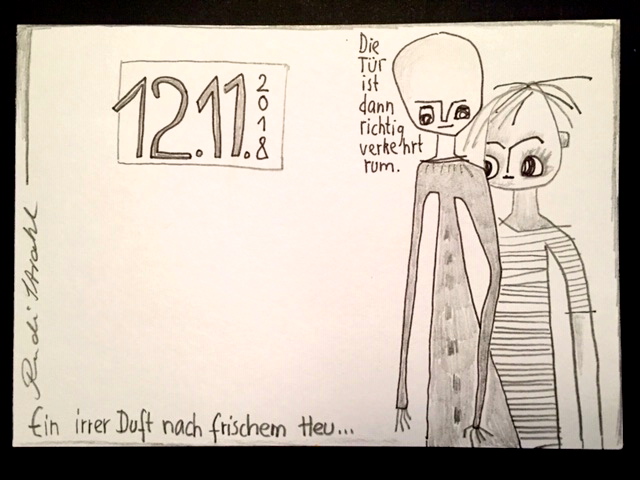 12.11.
2018
Die
Tür
ist
dann
richtig
verkehrt
rum.
Rudi Strahl
Ein irrer Duft nach frischem Heu...